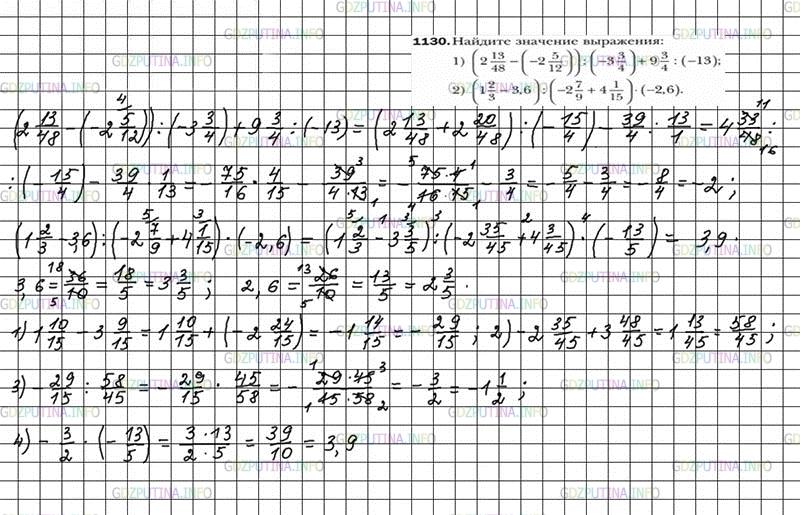 GDZPUTINA.INFO
1130. Найдите значение выражения:
1) (2 13/48 − (−2 5/12)) : (−3 3/4) + 9 3/4 : (−13);
2) (1 2/3 − 3,6) : (−2 7/9 + 4 1/15) · (−2,6).
(2 13/48 − (−2 5/12)) : (−3 3/4) + 9 3/4 : (−13) = (2 13/48 + 2 20/48) : (−15/4) − 39/4 : 13/1 = 4 33/48 :
: (−15/4) − 39/4 · 1/13 = −75/16 · 4/15 − 39/(4·13) = −(75·4)/(16·15) − 3/4 = −5/4 − 3/4 = −8/4 = −2;
(1 2/3 − 3,6) : (−2 7/9 + 4 1/15) · (−2,6) = (1 2/3 − 3 3/5) : (−2 35/45 + 4 3/45) · (−13/5) = 3,9.
3,6 = 36/10 = 18/5 = 3 3/5; 2,6 = 26/10 = 13/5 = 2 3/5.
1) 1 10/15 − 3 9/15 = 1 10/15 + (−2 24/15) = −1 14/15 = −29/15; 2) −2 35/45 + 3 48/45 = 1 13/45 = 58/45;
3) −29/15 : 58/45 = −29/15 · 45/58 = −(29·45)/(15·58) = −3/2 = −1 1/2;
4) −3/2 · (−13/5) = (3·13)/(2·5) = 39/10 = 3,9